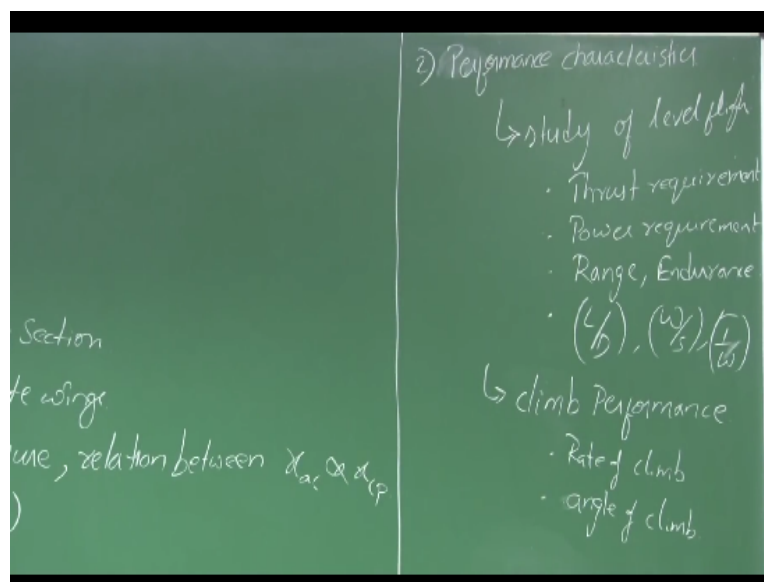 Section
te wings
ure, relation between x_ac & x_cp
)
2) Performance characteristics
↳ study of level fligh
· Thrust requirement
· Power requirement
· Range, Endurance
· (L/D), (W/S), (T/W)
↳ climb Performance
· Rate of climb
· angle of climb